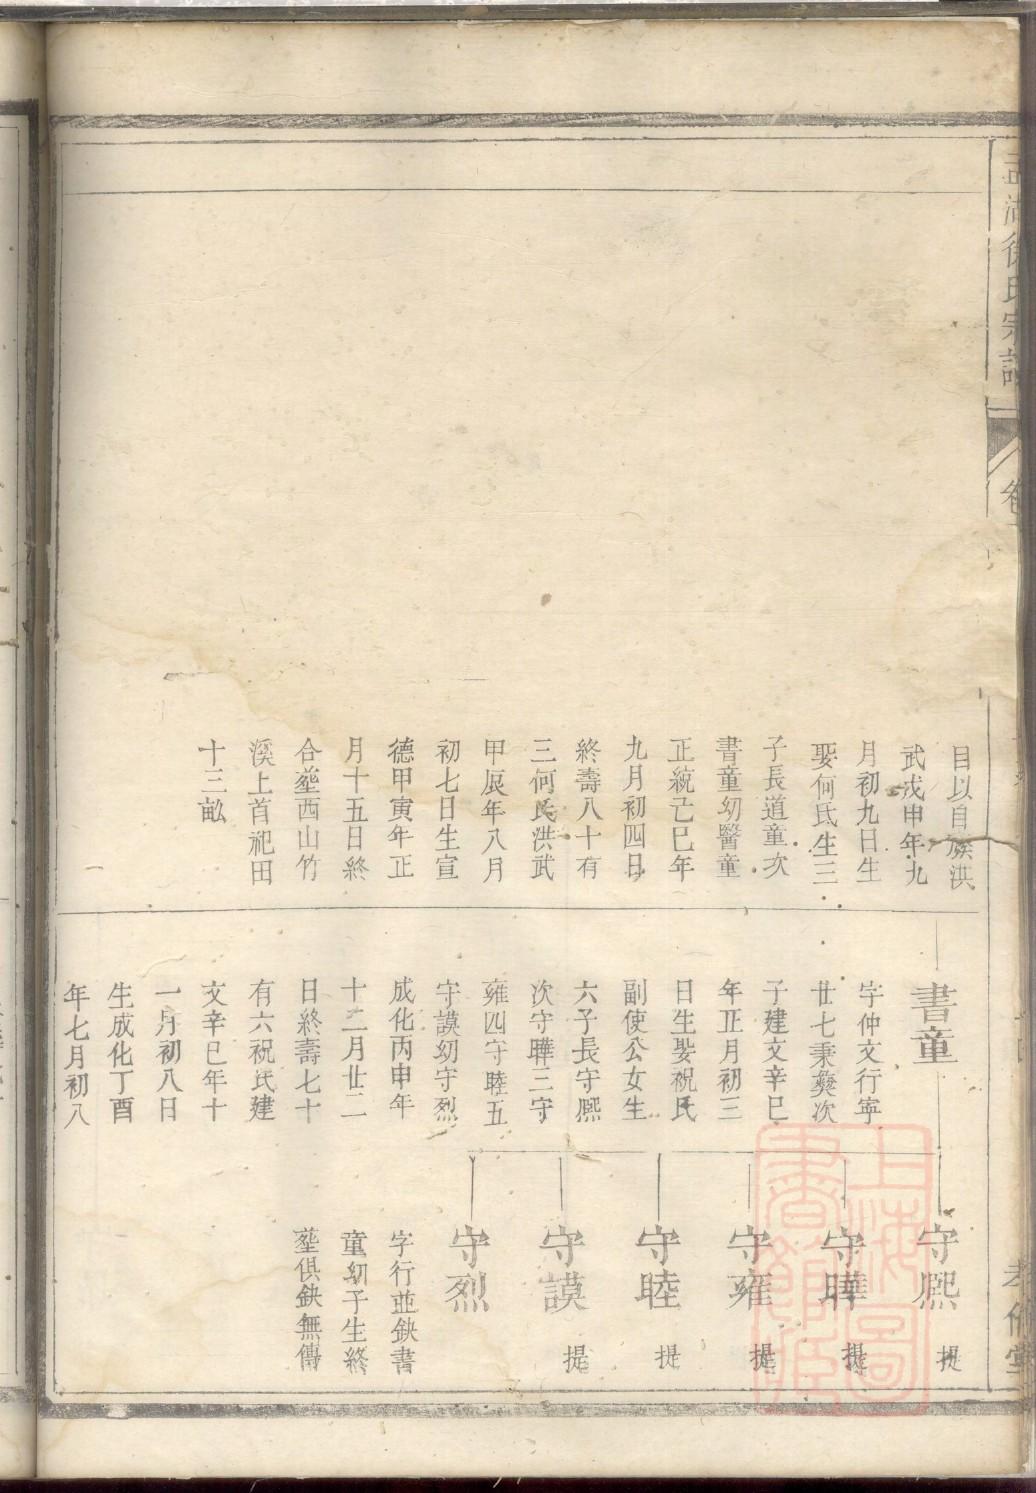 湖徐氏宗譜
卷
目以自族洪
武戊申年九
月初九日生
娶何氏生三
子長道童次
書童幼醫童
正統己巳年
九月初四日
終壽八十有
三何氏洪武
甲辰年八月
初七日生宣
德甲寅年正
月十五日終
合塟西山竹
溪上首祀田
十三畝
書童
字仲文行寧
廿七秉彜次
子建文辛巳
年正月初三
日生娶祝氏
副使公女生
六子長守熈
次守曄三守
雍四守睦五
守謨幼守烈
成化丙申年
十二月廿二
日終壽七十
有六祝氏建
文辛巳年十
一月初八日
生成化丁酉
年七月初八
守熈 提
守曄 提
守雍 提
守睦 提
守謨 提
守烈
字行並鈌書
童幼子生終
塟俱鈌無傳
上海圖
書館藏